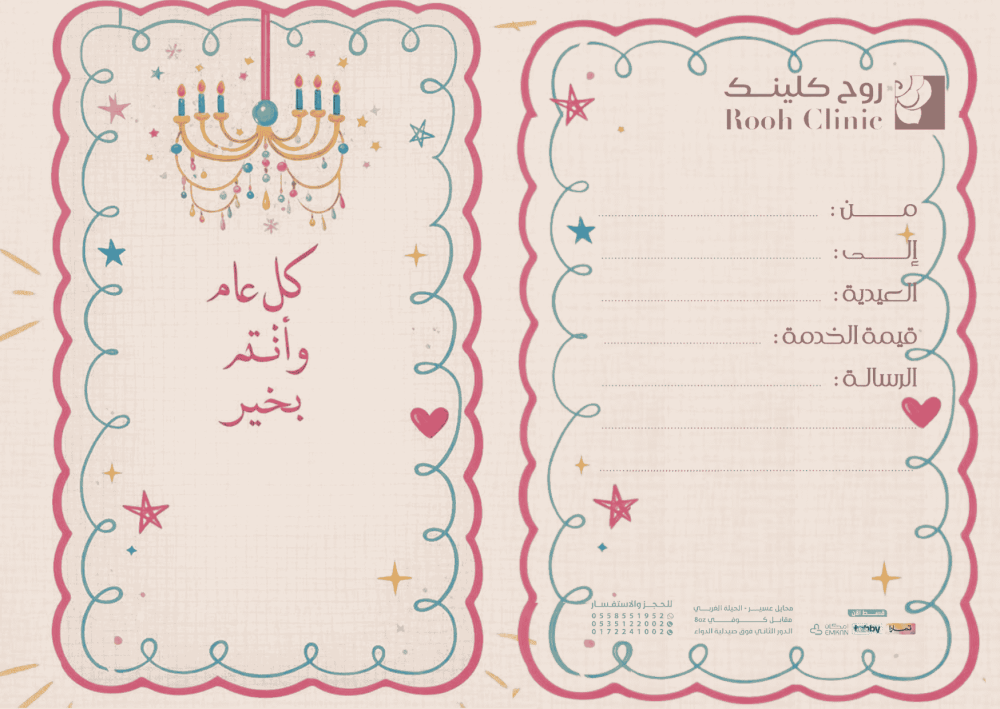 كل عام
وأنتم
بخير
روح كلينك
Rooh Clinic
من :
إلى :
العيدية :
قيمة الخدمة :
الرسالة :
للحجز والاستفسار
0558551952
0535122002
0172241002
محايل عسير - الحيلة الغربي
مقابل كوفي 8oz
الدور الثاني فوق صيدلية الدواء
قسط الآن
EMKAN
tabby
تمارا